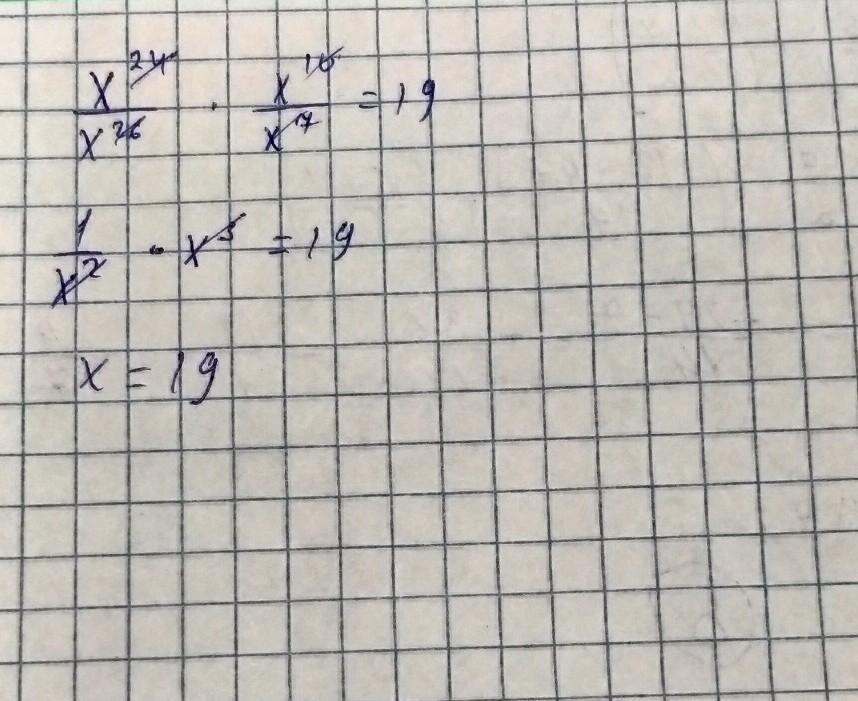 x^24/x^26 · x^10/x^7 = 19
1/x^2 · x^3 = 19
x = 19